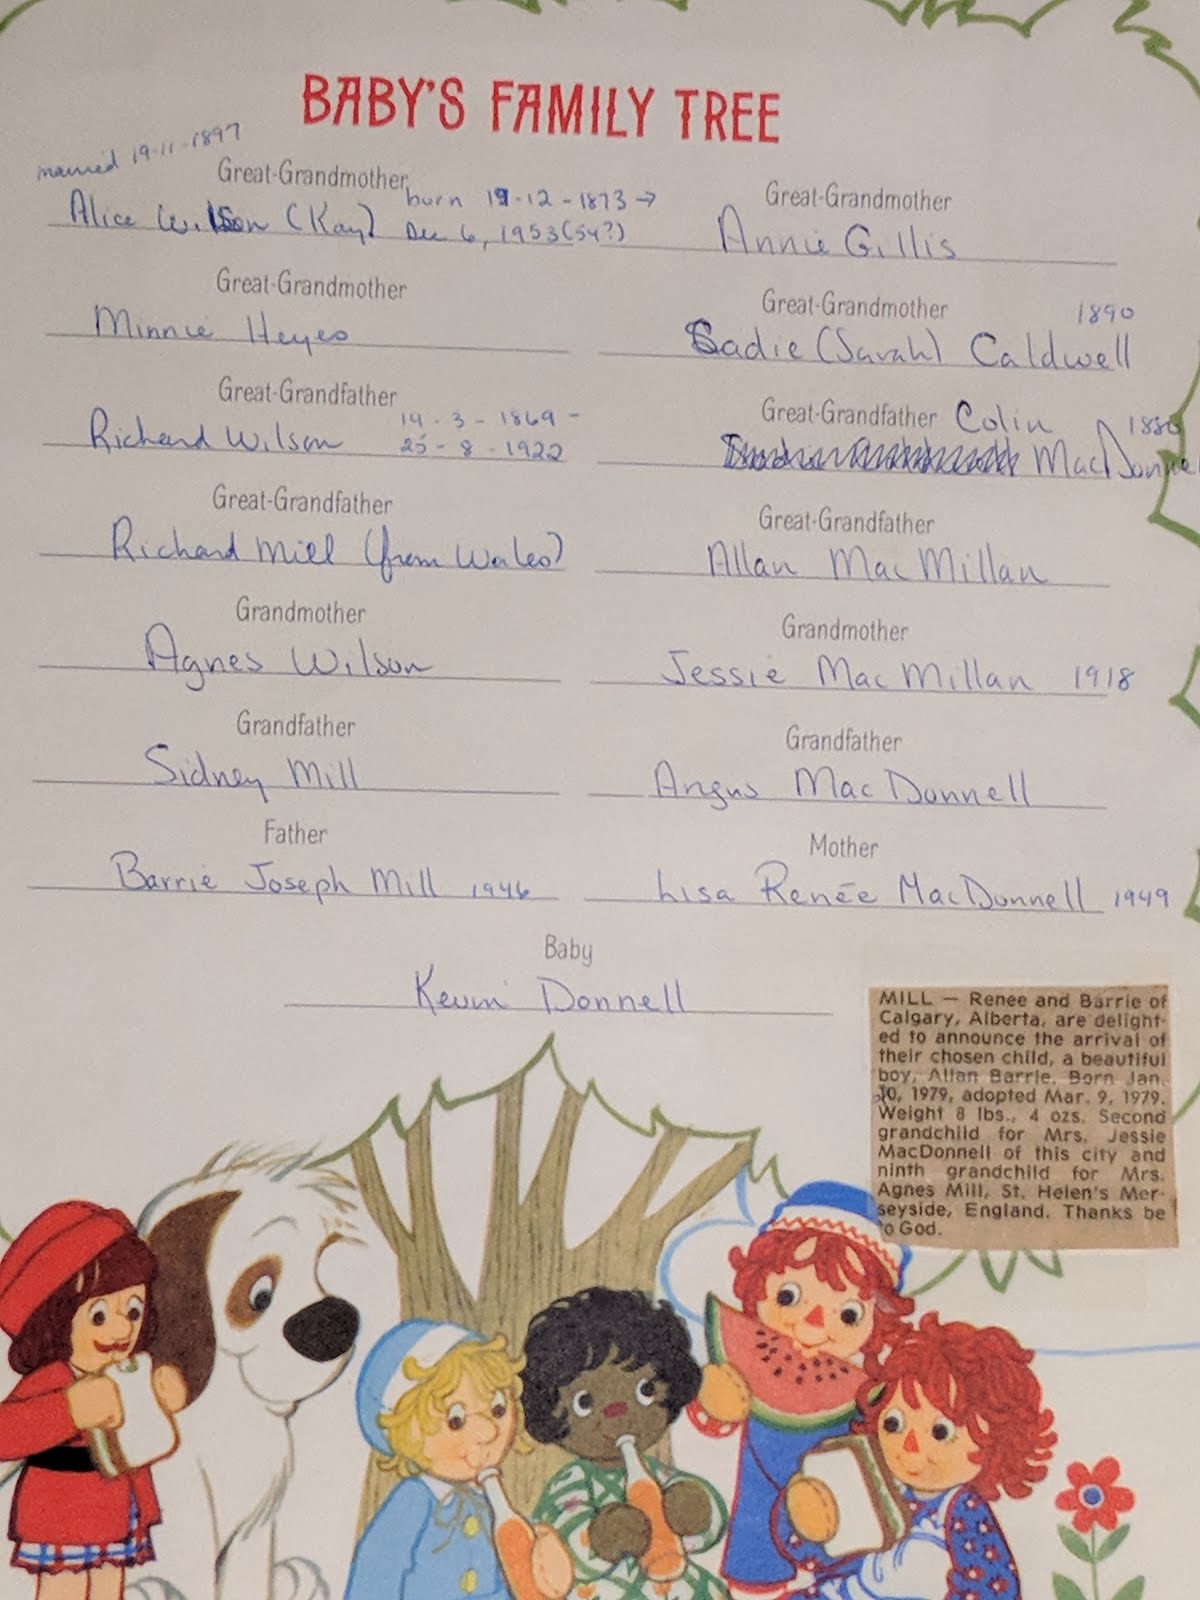 BABY'S FAMILY TREE
married 19-11-1897
Great-Grandmother
born 19-12-1873 →
Alice Wilson (Kay) Dec 6, 1953 (54?)
Great-Grandmother
Annie Gillis
Great-Grandmother
Minnie Heyes
Great-Grandmother 1890
Sadie (Sarah) Caldwell
Great-Grandfather
14-3-1869 -
Richard Wilson 25-8-1922
Great-Grandfather Colin 1880
MacDonnel
Great-Grandfather
Richard Mill (from Wales)
Great-Grandfather
Allan MacMillan
Grandmother
Agnes Wilson
Grandmother
Jessie MacMillan 1918
Grandfather
Sidney Mill
Grandfather
Angus MacDonnell
Father
Barrie Joseph Mill 1946
Mother
Lisa Renée MacDonnell 1949
Baby
Kevin Donnell
MILL — Renee and Barrie of
Calgary, Alberta, are delight-
ed to announce the arrival of
their chosen child, a beautiful
boy, Allan Barrie. Born Jan.
10, 1979, adopted Mar. 9, 1979.
Weight 8 lbs., 4 ozs. Second
grandchild for Mrs. Jessie
MacDonnell of this city and
ninth grandchild for Mrs.
Agnes Mill, St. Helen's Mer-
seyside, England. Thanks be
to God.